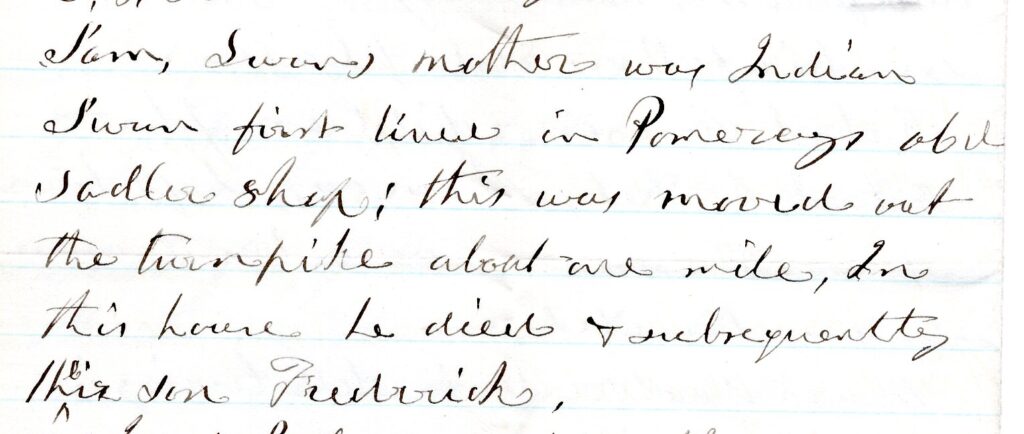 Sam, Swans mother was Indian
Swan first lived in Pomeroys old
sadler shop; this was moved out
the turnpike about one mile, In
this house he died & subsequently
his son Frederick,